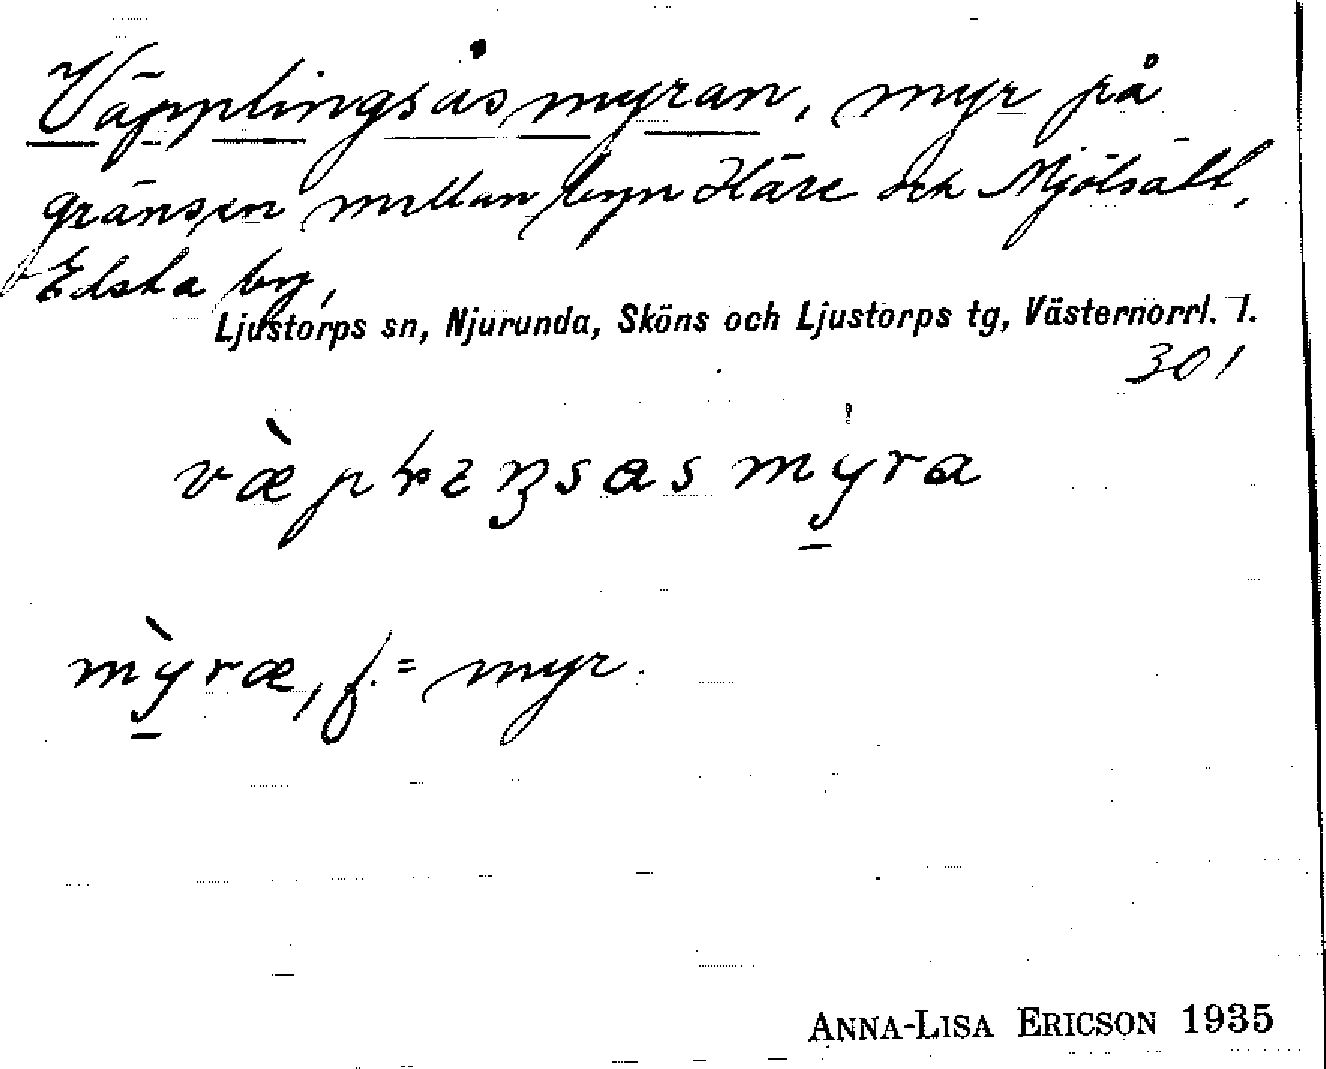 Väpplingsåsmyran, myr på
gränsen mellan byn Häre och Mjölsätt,
Edska by,
Ljustorps sn, Njurunda, Sköns och Ljustorps tg, Västernorrl. l.
301
myræ, f. = myr.
ANNA-LISA ERICSON 1935